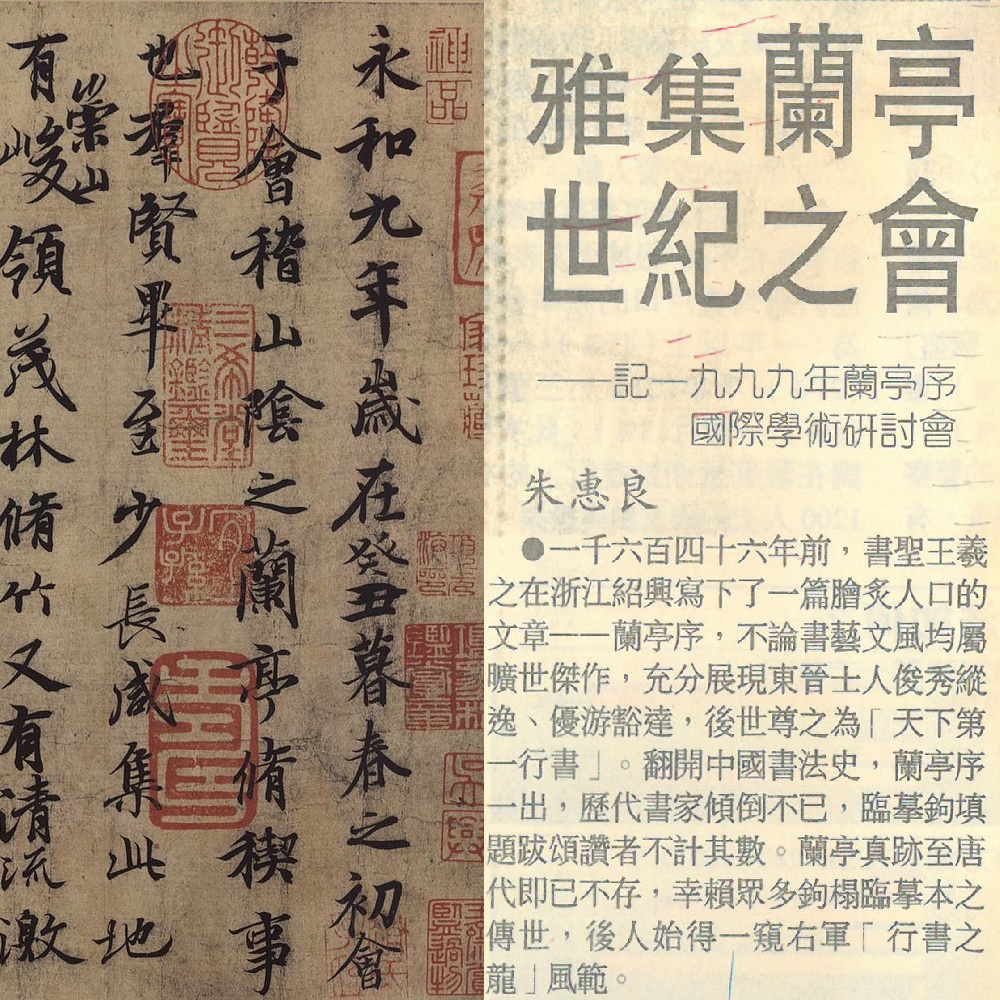 永和九年歲在癸丑暮春之初會
于會稽山陰之蘭亭脩稧事
也羣賢畢至少長咸集此地
有崇山峻領茂林脩竹又有清流激
神品
乾隆御覽之寶
三希堂精鑑璽
宜子孫
雅集蘭亭
世紀之會
——記一九九九年蘭亭序
國際學術研討會
朱惠良
●一千六百四十六年前，書聖王羲
之在浙江紹興寫下了一篇膾炙人口的
文章——蘭亭序，不論書藝文風均屬
曠世傑作，充分展現東晉士人俊秀縱
逸、優游豁達，後世尊之為「天下第
一行書」。翻開中國書法史，蘭亭序
一出，歷代書家傾倒不已，臨摹鉤填
題跋頌讚者不計其數。蘭亭真跡至唐
代即已不存，幸賴眾多鉤搨臨摹本之
傳世，後人始得一窺右軍「行書之
龍」風範。